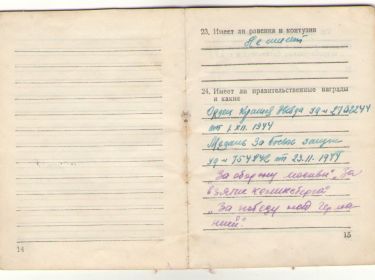 23. Имеет ли ранения и контузии
Не имеет
24. Имеет ли правительственные награды
и какие
Орден Красная Звезда уд №
от 1.XII.1944
Медаль За боевые заслуги
уд № от 23.11.1944
"За оборону Москвы", "За
взятие Кенигсберга"
"За победу над Герма
нией".
14
15